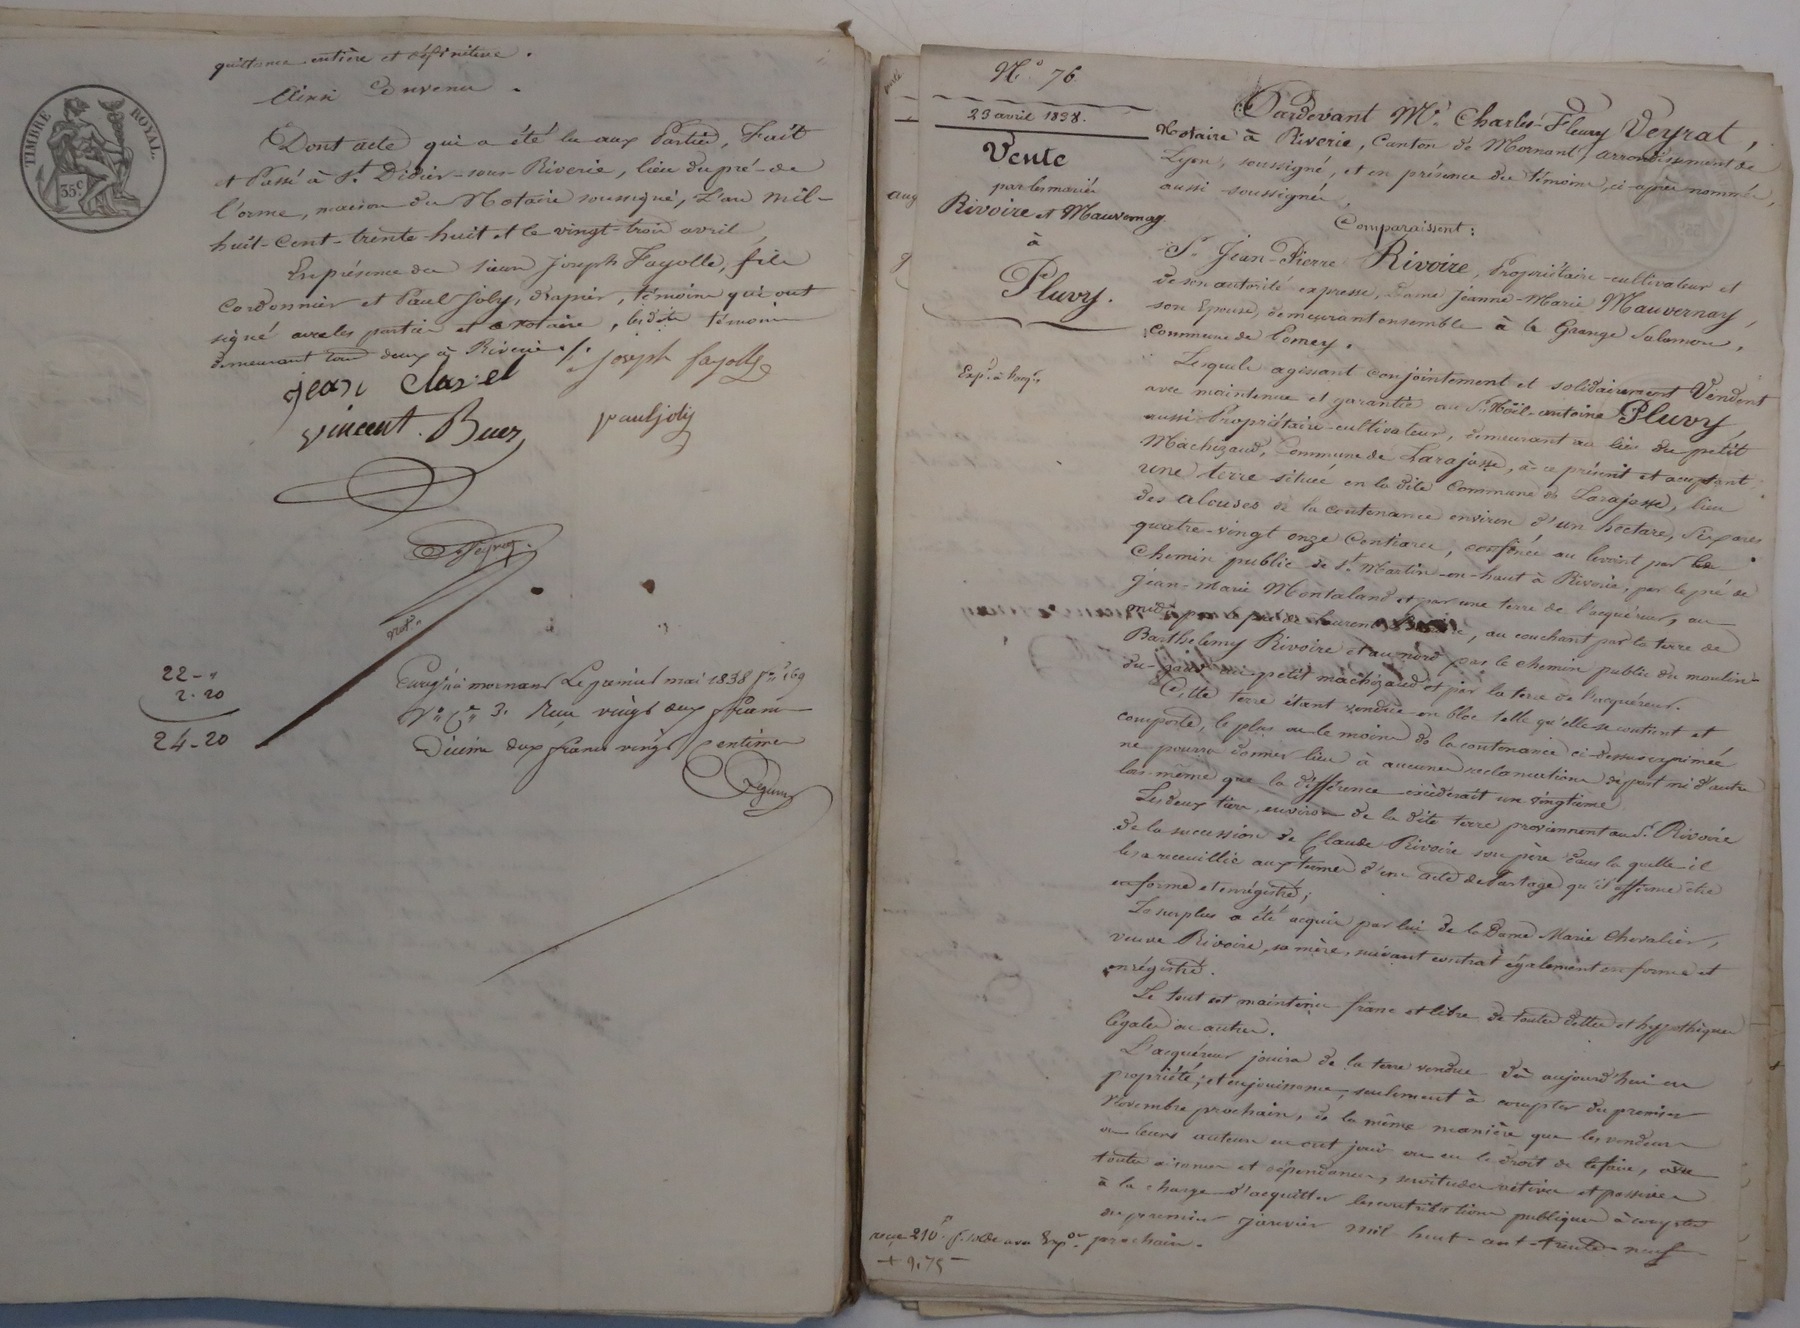 TIMBRE ROYAL.
35c.
quittance entière et définitive.
Ainsi Convenu.
Dont acte qui a été lu aux Parties, Fait
et Passé à St. Didier-sous-Riverie, lieu du pré-de
l'orme, maison du Notaire soussigné, L'an mil-
huit-cent-trente-huit et le vingt-trois avril,
En présence des sieurs Joseph Fayolle, fils
Cordonnier et Paul Joly, drapier, témoins qui ont
signé avec les parties et notaire, les dits témoins
demeurant tous deux à Riverie./.
joseph fayolle
jean Clavel
vincent. Buer
pauljoly
Veyrat
not.re
22 - "
2. 20
24 - 20
Enregistré à mornant Le premier mai 1838 fo 169
Vo Ce 3. Reçu vingt deux francs
Décime deux francs vingt Centimes
No. 76
23 avril 1838.
Vente
par les mariés
Rivoire et Mauvernay
à
Pluvy.
Expn. à l'acqr.
Pardevant Me. Charles-Fleury Veyrat,
Notaire à Riverie, Canton de Mornant, arrondissement de
Lyon, soussigné, et en présence des témoins, ci-après nommés,
aussi soussignés,
Comparaissent:
Sr. Jean-Pierre Rivoire, Propriétaire-cultivateur et
de son autorité expresse, Dame Jeanne-Marie Mauvernay,
son Epouse, demeurant ensemble à la Grange Salomon,
Commune de Pomey.
Lesquels agissant conjointement et solidairement Vendent
avec maintenue et garantie au Sr. Noël-antoine Pluvy,
aussi Propriétaire-cultivateur, demeurant au lieu du petit
Machizaud, Commune de Larajasse, à ce présent et acceptant
une terre située en la dite Commune de Larajasse, lieu
des alouses de la contenance environ d'un hectare, six ares
quatre-vingt onze Centiares, confinée au levant par le
Chemin public de St. Martin-en-haut à Riverie, par le pré de
Jean-Marie Montaland et par une terre de l'acquéreur, au
midi par, au couchant par la terre de
Barthelemy Rivoire et au nord par le chemin public du moulin-
du- au petit machizaud et par la terre de l'acquéreur.
Cette terre étant vendue en bloc telle qu'elle se contient et
comporte, le plus ou le moins de la contenance ci-dessus exprimée
ne pourra donner lieu à aucunes reclamations de part ni d'autre
lors-même que la différence excèderait un vingtième.
Les deux tiers environ de la dite terre proviennent au Sr. Rivoire
de la succession de Claude Rivoire son père dans la quelle il
les a recueillis aux termes d'un acte de Partage qu'il affirme être
en forme et enrégistré;
Le surplus a été acquis par lui de la Dame Marie Chevalier,
veuve Rivoire, sa mère, suivant contrat également en forme et
enrégistré.
Le tout est maintenu franc et libre de toutes dettes et hypothèques
légales ou autres.
L'acquéreur jouira de la terre vendue dès aujourd'hui en
propriété; et en jouissance, seulement à compter du premier
Novembre prochain, de la même manière que les vendeurs
ou leurs auteurs en ont joui ou eu le droit de le faire, avec
toutes aisances et dépendances, servitudes actives et passives
à la charge d'acquitter les contributions publiques à compter
du premier janvier mil huit-cent-trente-neuf
prochain.
reçu 210f. p. solde avec Expon.
+ 9,75 -